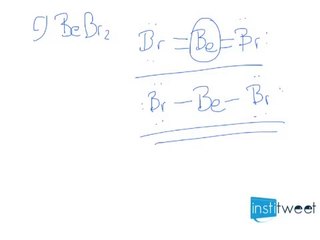 g) BeBr₂
Br = Be = Br
Br — Be — Br
institweet